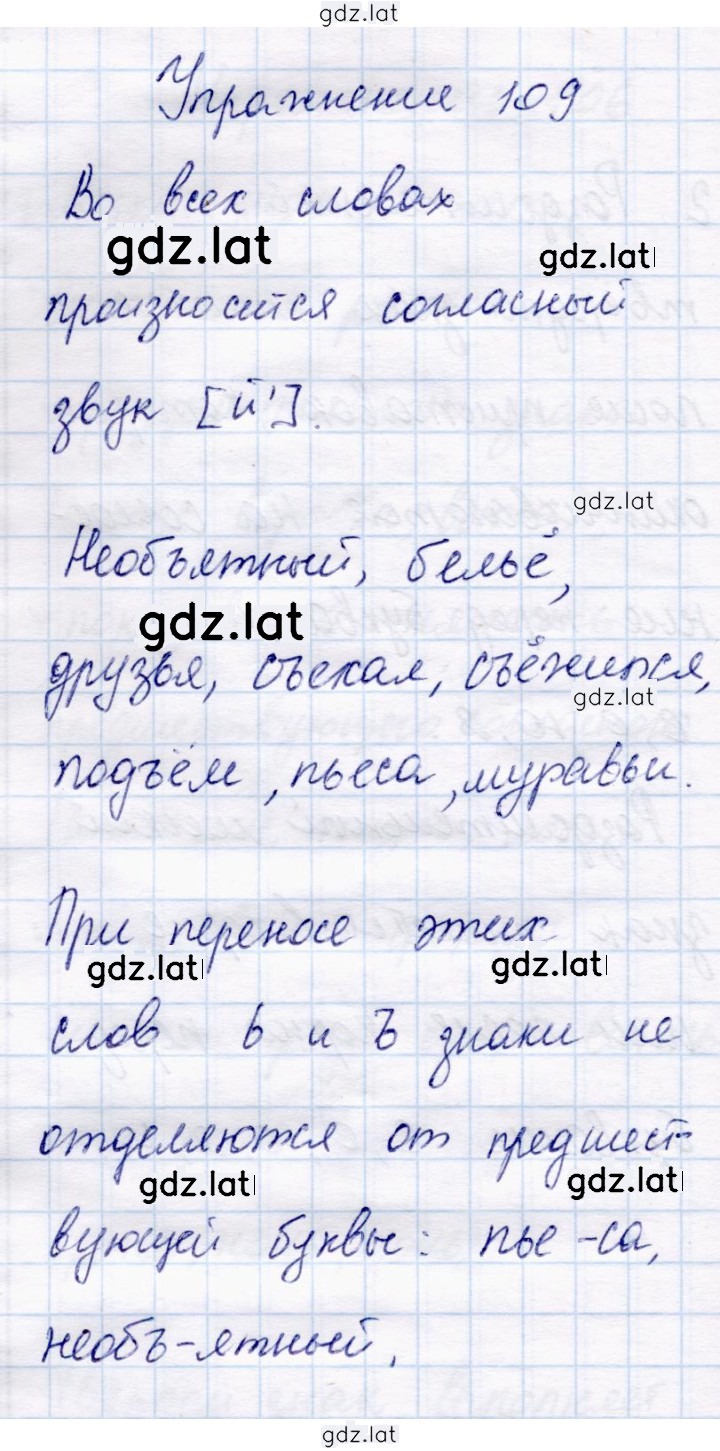 gdz.lat
Упражнение 109
Во всех словах
gdz.lat gdz.lat
произносится согласный
звук [й'].
gdz.lat
Необъятный, бельё,
gdz.lat
друзья, съехал, съёжился,
gdz.lat
подъём, пьеса, муравьи.
При переносе этих
gdz.lat gdz.lat
слов ь и ъ знаки не
отделяются от предшест-
gdz.lat gdz.lat
вующей буквы: пье-са,
необъ-ятный.
gdz.lat